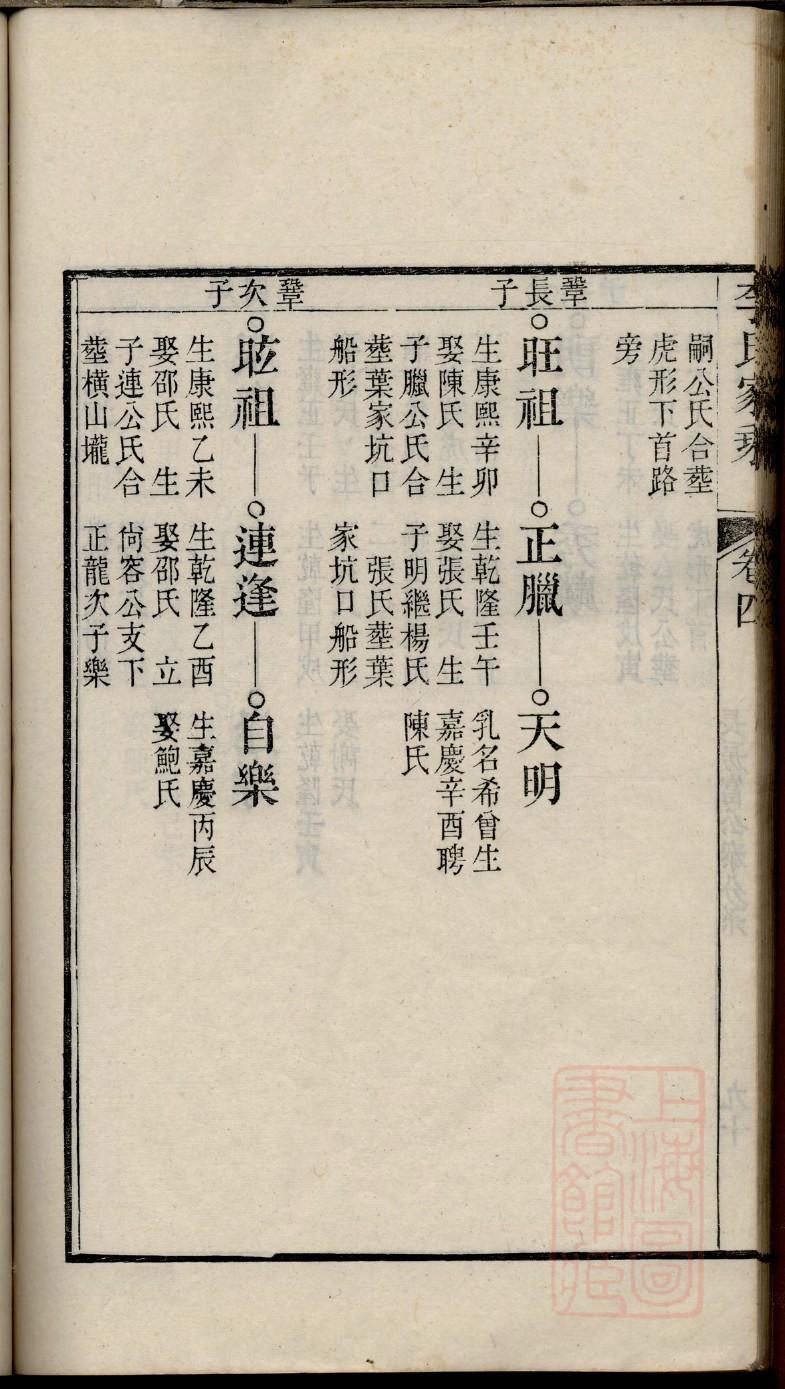 李氏家乘
卷四
嗣公氏合塟
虎形下首路
旁
鞏長子
旺祖
生康熙辛卯
娶陳氏 生
子臘公氏合
塟葉家坑口
船形
正臘
生乾隆壬午
娶張氏 生
子明繼楊氏
二 張氏塟葉
家坑口船形
天明
乳名希曾生
嘉慶辛酉聘
陳氏
鞏次子
昡祖
生康熙乙未
娶邵氏 生
子連公氏合
塟橫山壠
連逢
生乾隆乙酉
娶邵氏 立
尙容公支下
正龍次子樂
自樂
生嘉慶丙辰
娶鮑氏
上海圖
書館藏